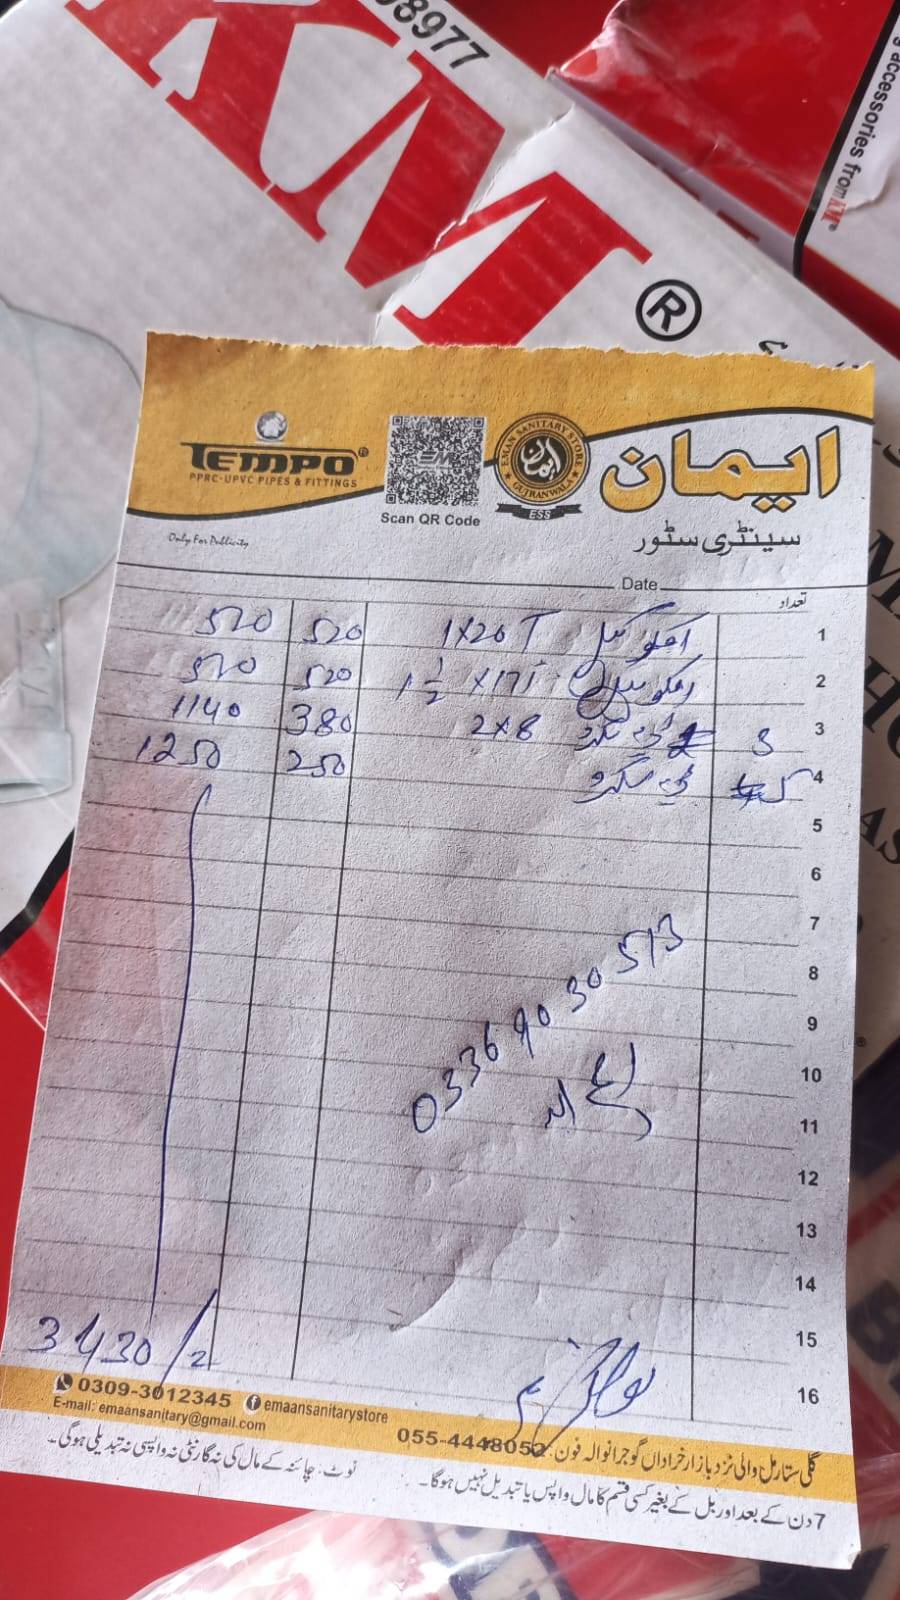 08977
KM
®
accessories from KM®
TEMPO
PPRC-UPVC PIPES & FITTINGS
Only For Publicity
Scan QR Code
EMAN SANITARY STORE
ایمان
GUJRANWALA
ESS
ایمان
سینٹری سٹور
Date
تعداد
1 1x20 520 520
2 1 1/2 x 17 520 520
3 3 2x8 380 1140
4 5 250 1250
5
6
7
8
9
10
11
12
13
14
15
16
0336 9030513
3430/2
0309-3012345 emaansanitarystore
E-mail: emaansanitary@gmail.com
گلی ستار مل والی نزد بازار خراداں گوجرانوالہ فون: 055-4448052
نوٹ: چائنہ کے مال کی نہ گارنٹی نہ واپسی نہ تبدیلی ہوگی۔
7 دن کے بعد اور بل کے بغیر کسی قسم کا مال واپس یا تبدیل نہیں ہوگا۔